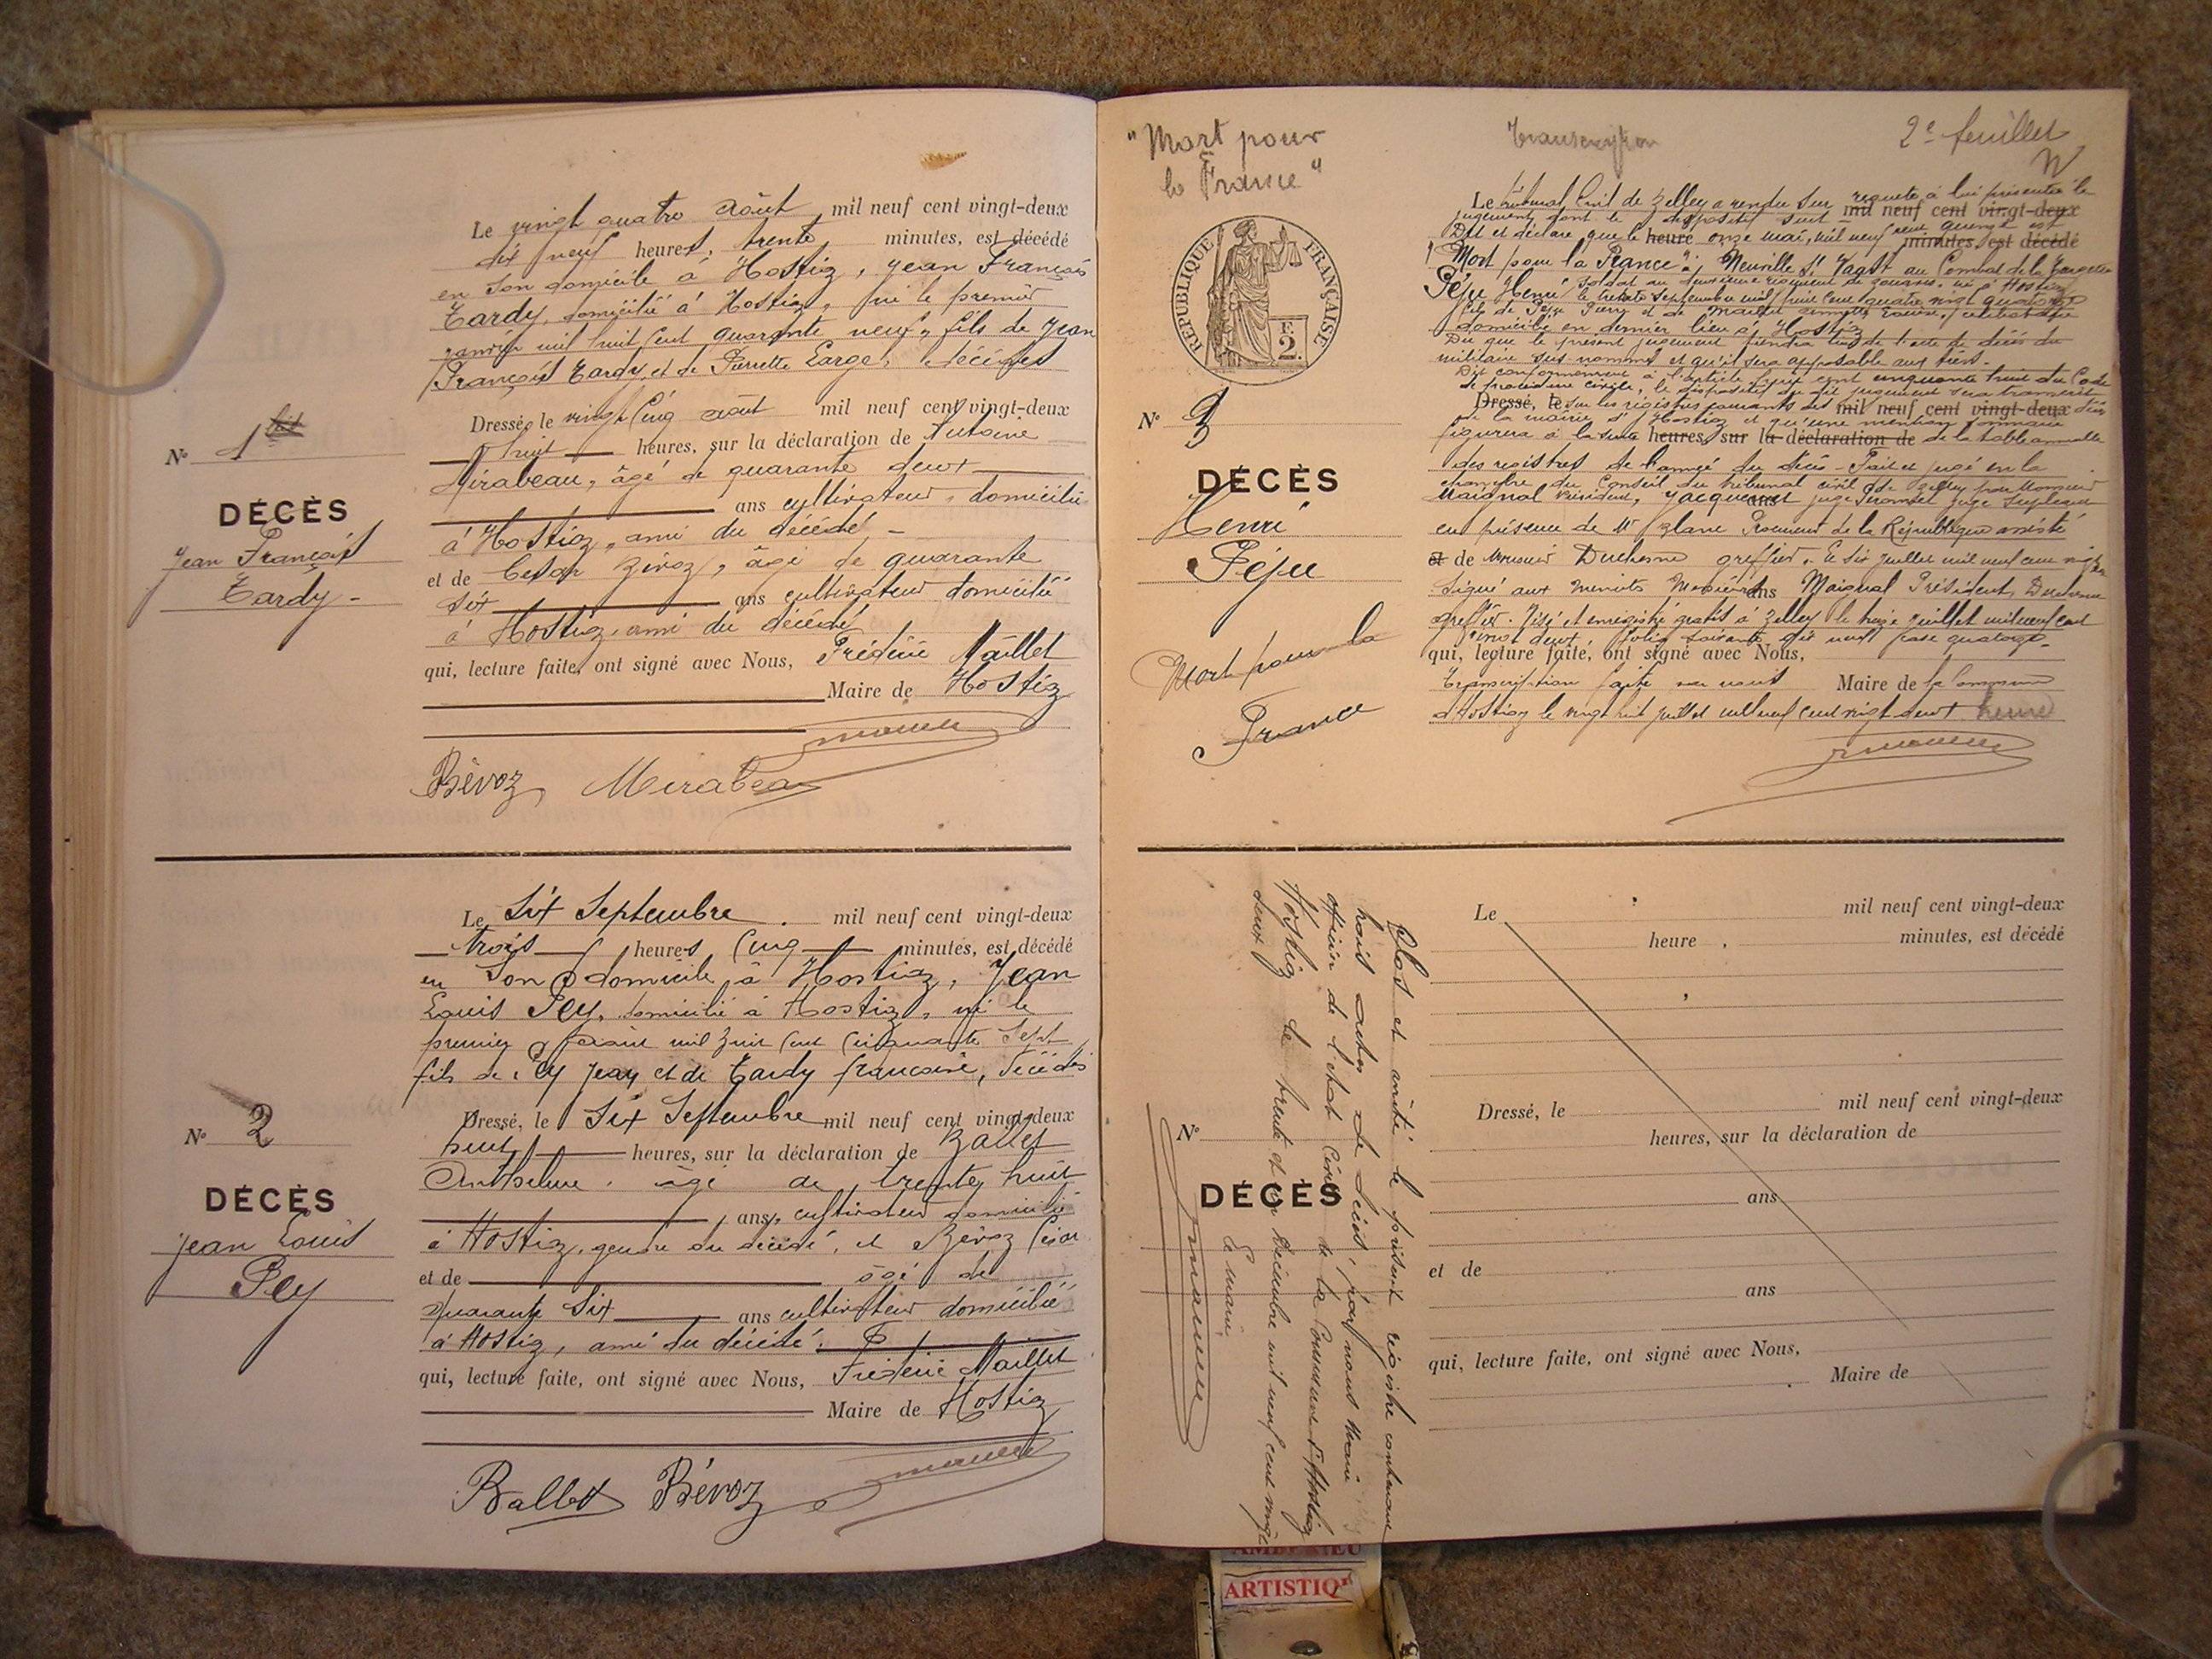 Le vingt quatre août mil neuf cent vingt-deux
dix neuf heures, trente minutes, est décédé
en son domicile à Hostiaz, Jean François
Tardy, domicilié à Hostiaz, né le premier
janvier mil huit cent quarante neuf, fils de Jean
François Tardy et de Pierrette Large, décédés
Dressé, le vingt cinq août mil neuf cent vingt-deux
huit heures, sur la déclaration de Antoine
Mirabeau, âgé de quarante deux
ans cultivateur, domicilié
à Hostiaz, ami du décédé,
et de César Bévoz, âgé de quarante
six ans cultivateur domicilié
à Hostiaz, ami du décédé
qui, lecture faite, ont signé avec Nous, Frédéric Maillet
Maire de Hostiaz
Bévoz Mirabeau
N° 1
DÉCÈS
Jean François
Tardy
Le Six Septembre mil neuf cent vingt-deux
trois heures Cinq minutes, est décédé
en son domicile à Hostiaz, Jean
Louis Pey, domicilié à Hostiaz, né le
premier mil huit cent cinquante sept
fils de Pey Jean et de Tardy françoise, décédés
Dressé, le Six Septembre mil neuf cent vingt-deux
huit heures, sur la déclaration de Ballet
Anthelme âgé de trente huit
ans, cultivateur domicilié
à Hostiaz, gendre du décédé, et Bévoz César
et de âgé de
quarante six ans cultivateur domicilié
à Hostiaz, ami du décédé.
qui, lecture faite, ont signé avec Nous, Frédéric Maillet
Maire de Hostiaz
Ballet Bévoz
N° 2
DÉCÈS
Jean Louis
Pey
"Mort pour
la France"
Transcription
2e feuillet
RÉPUBLIQUE FRANÇAISE
2F.
N° 3
DÉCÈS
Henri
Péju
Mort pour la
France
Le tribunal Civil de Belley a rendu sur requete à lui présentée le
jugement dont le dispositif suit mil neuf cent vingt-deux
Dit et déclare que le heure onze mai, mil neuf cent quinze est minutes, est décédé
"Mort pour la France" à Neuville St Vaast au Combat de la Targette
Péju Henri soldat au deuxième régiment de zouaves, né à Hostiaz
le trente septembre mil huit cent quatre vingt quatorze
fils de Péju Pierre et de Maillet Louise, célibataire
domicilié en dernier lieu à Hostiaz
Dit que le présent jugement tiendra lieu de l'acte de décès du
militaire sus-nommé et qu'il sera opposable aux tiers.
Dit conformément à l'article cent cinquante huit du Code
de procédure civile, le dispositif du dit jugement sera transcrit
Dressé, le sur les registres courants des mil neuf cent vingt-deux décès
de la mairie d'Hostiaz et qu'une mention sommaire
figurera à la suite heures, sur la déclaration de de la table annuelle
des registres de l'année du décès - Fait et jugé en la
chambre du Conseil du tribunal civil de Belley par Monsieur
Maignal Président, juge juge Supléant
en présence de Mr Procureur de la République assisté
et de Monsieur Duchesne greffier. Le six juillet mil neuf cent vingt
Signé aux minutes Messieurs ans Maignal Président, Duchesne
greffier. Visé et enregistré gratis à Belley le treize juillet mil neuf cent
vingt deux, folio soixante dix neuf case quatorze.
qui, lecture faite, ont signé avec Nous,
Transcription faite par nous Maire de la Commune
d'Hostiaz le vingt huit juillet mil neuf cent vingt deux
Le mil neuf cent vingt-deux
heure , minutes, est décédé
Dressé, le mil neuf cent vingt-deux
heures, sur la déclaration de
ans
et de
ans
qui, lecture faite, ont signé avec Nous,
Maire de
N°
DÉCÈS
Clos et arrêté le présent registre contenant
trois actes de décès, par nous Maire
officier de l'état Civil de la Commune d'Hostiaz
Hostiaz le trente et un Décembre mil neuf cent vingt
deux
Le maire,
ARTISTIQ